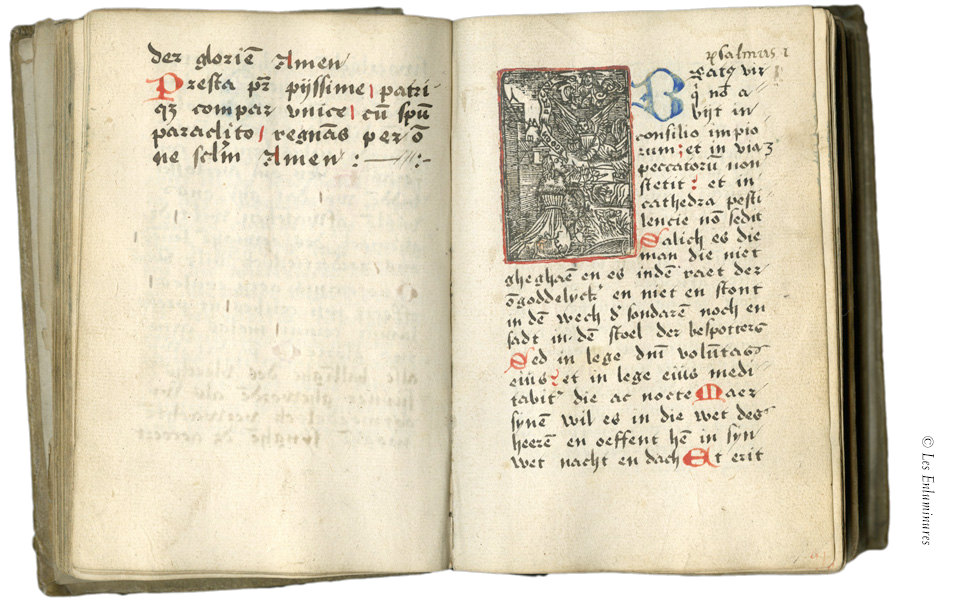 der gloriē Amen
Presta pr̄ pijssime patri
qz compar vnice cū spū
paraclito regnās per ō
ne sclm Amen :
psalmus 1
Beatꝰ vir
q̄ nō a
bijt in
consilio impio
rum et in via
peccatorū non
stetit et in
cathedra pesti
lencie nō sedit
Salich es die
man die niet
gheghaē en es indē raet der
ōgoddelijck en niet en stont
in dē wech d' sondarē noch en
sadt in dē stoel der bespotters
Sed in lege dnī volūtas
eiūs et in lege eiūs medi
tabit die ac nocte Maer
synē wil es in die wet des
heerē en oeffent hē in syn
wet nacht en dach Et erit
© Les Enluminures